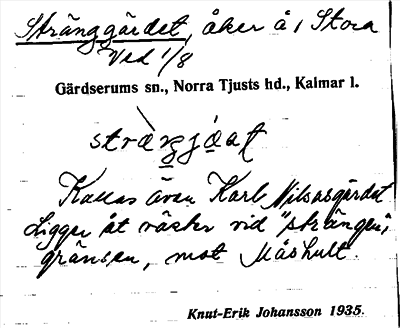 Stränggärdet, åker å, Stora
Ved 1/8
Gärdserums sn., Norra Tjusts hd., Kalmar l.
Kallas även Karl Nilsasgärdet
Ligger åt väster vid "strängen",
gränsen, mot Måshult.
Knut-Erik Johansson 1935.